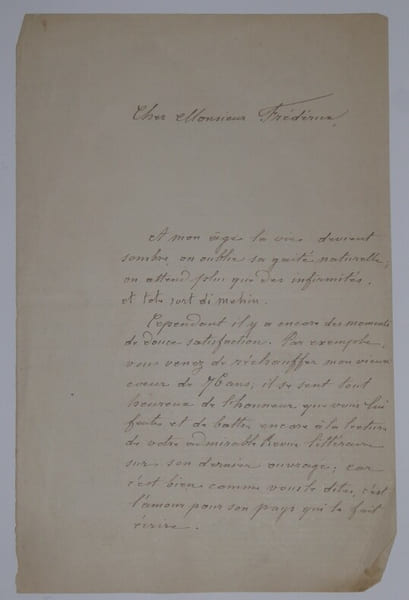 Cher Monsieur Frédérick,
A mon âge la vie devient
sombre, on oublie sa gaité naturelle,
on attend plus que des infirmités,
et
Cependant il y a encore des moments
de douce satisfaction. Par exemple,
vous venez de réchauffer mon vieux
coeur de 76 ans; il se sent tout
heureux de l'honneur que vous lui
faites et de battre encore à la lecture
de votre admirable Revue littéraire
sur son dernier ouvrage; car
c'est bien comme vous le dites, c'est
l'amour pour son pays qui le fait
écrire.